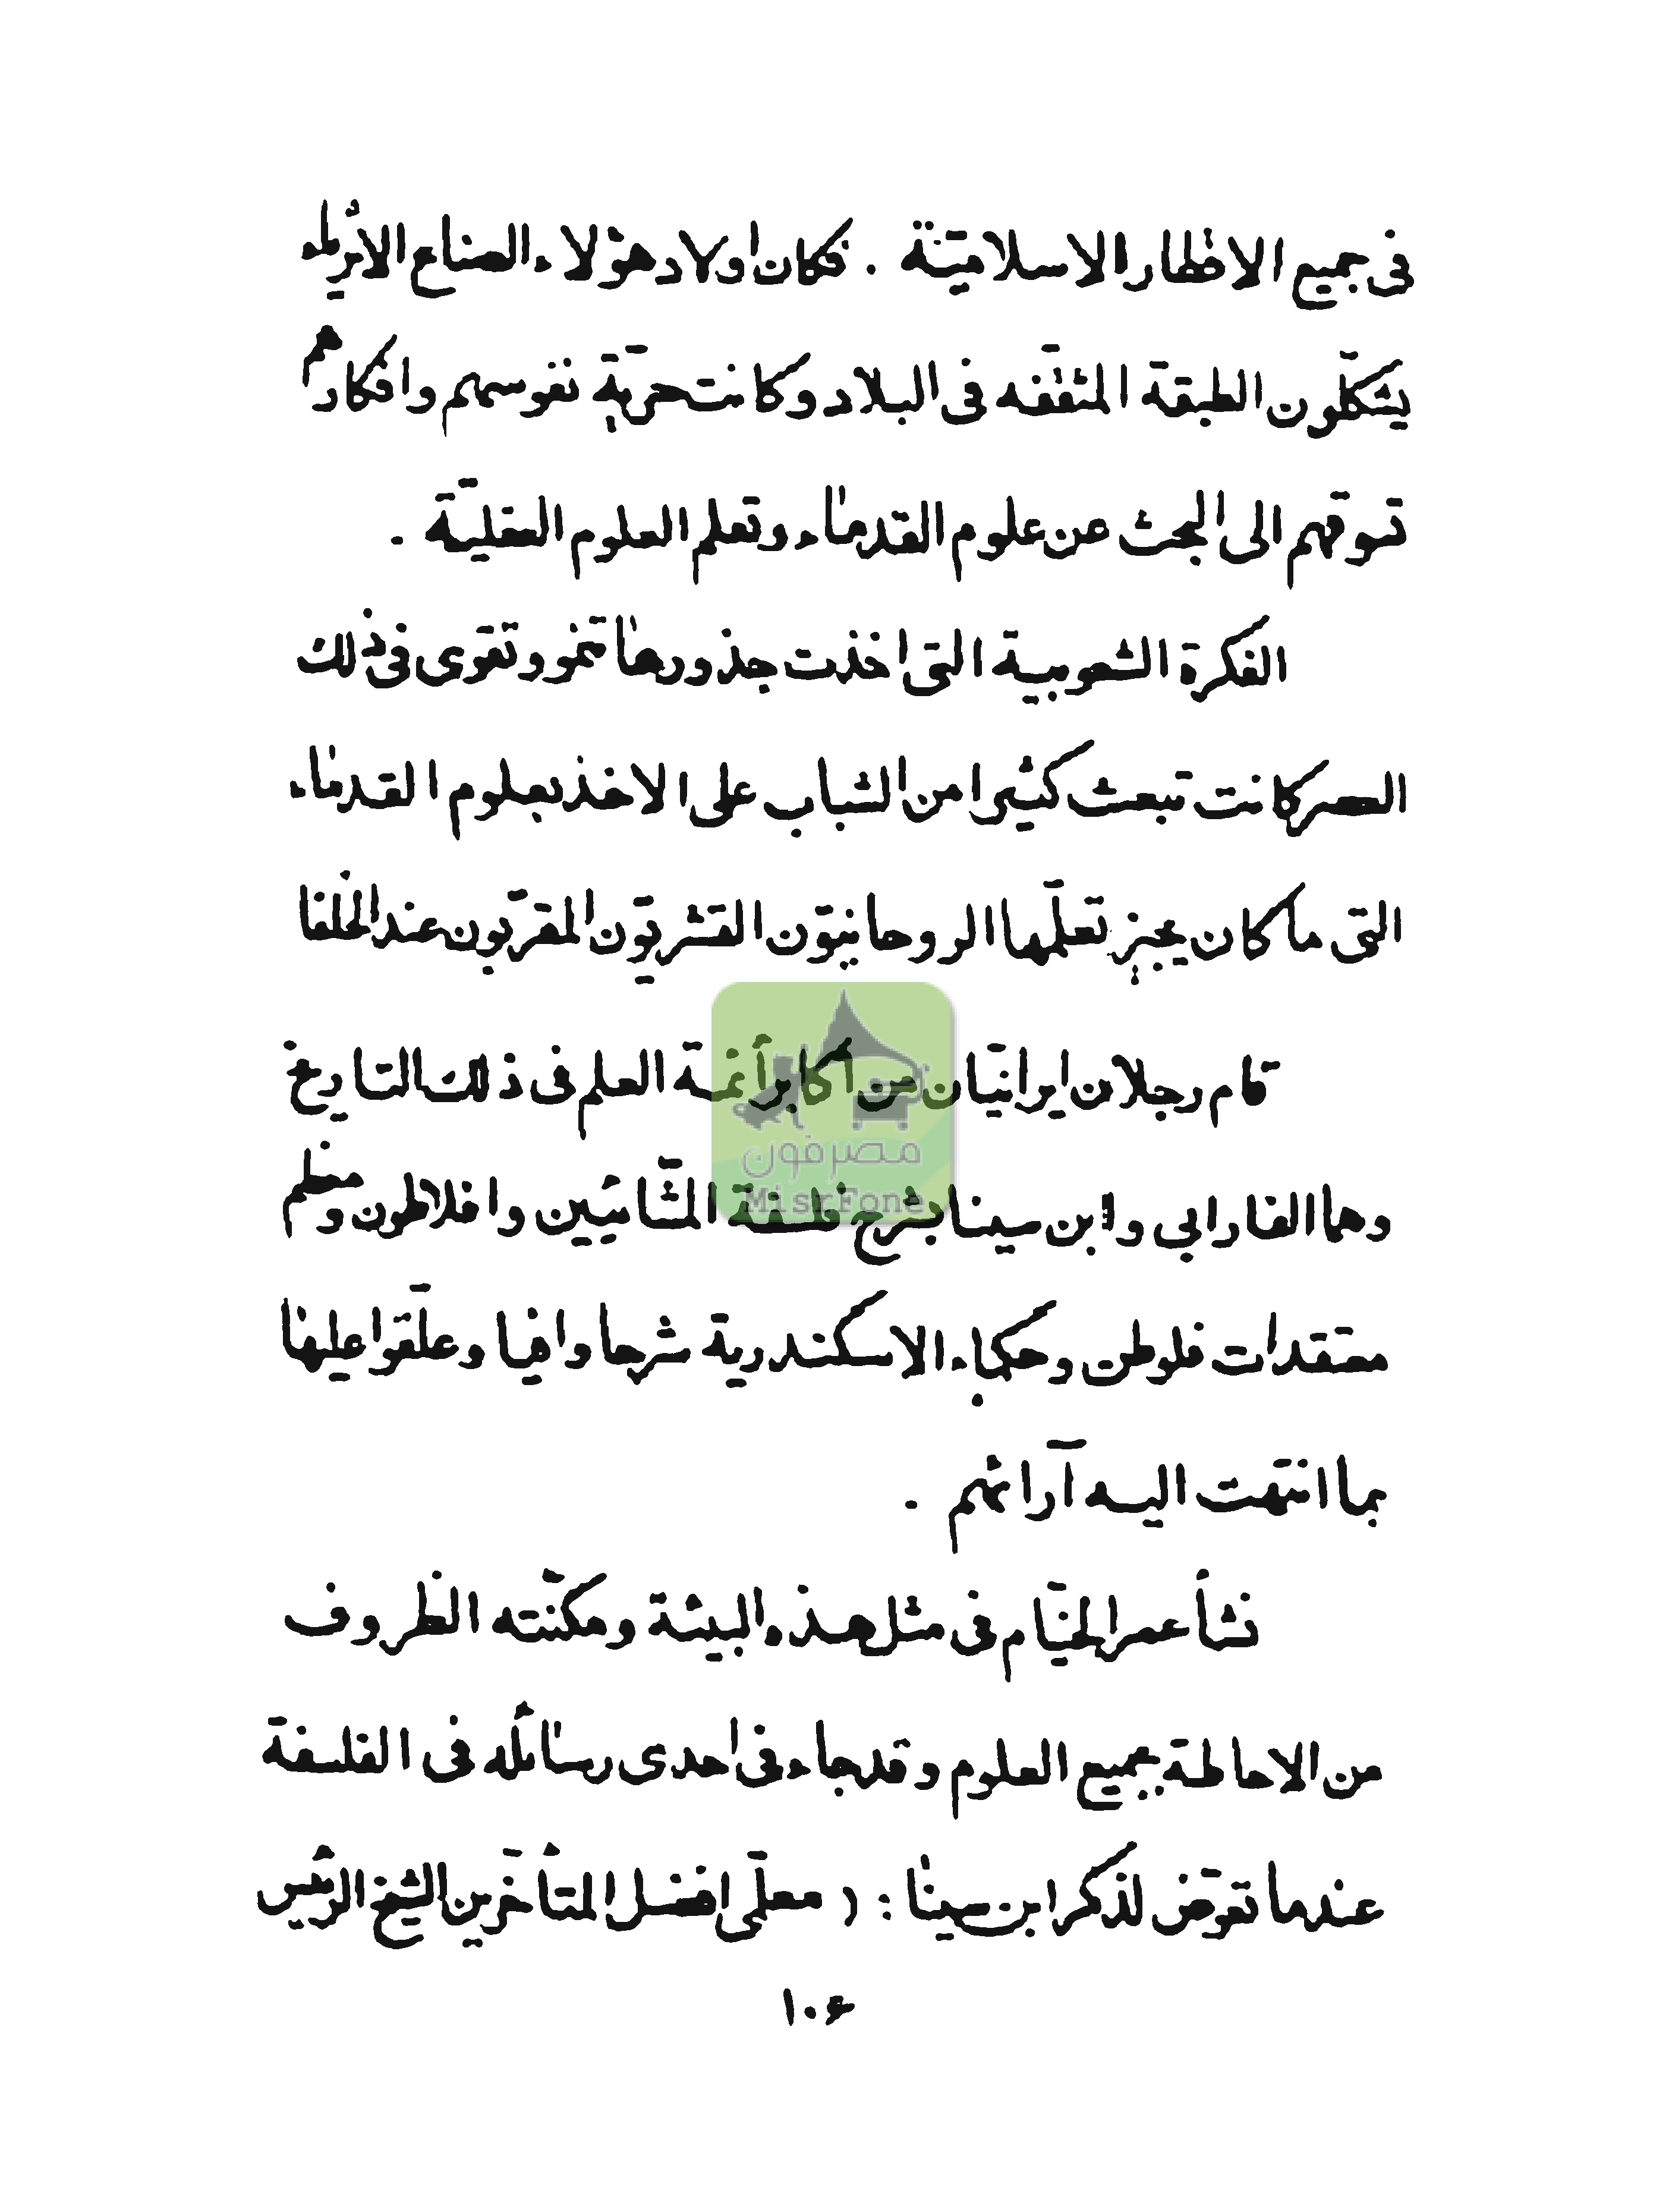 فى جميع الاقطار الاسلاميّة . فكان اولاد هؤلاء الصناع الأثرياء
يشكّلون الطبقة المثقفه فى البلاد وكانت حريّة نفوسهم وافكارهم
تسوقهم الى البحث عن علوم القدماء وتعلم العلوم العقليّة .
الفكرة الشعوبية التى اخذت جذورها تنمو وتقوى فى ذلك
العصر كانت تبعث كثيرا من الشباب على الاخذ بعلوم القدماء
التى ما كان يجيز تعلّمها الروحانيّون القشريّون المقرّبون عند الخلفا
قام رجلان ايرانيّان من أكابر أئمة العلم فى ذلك التاريخ
وهما الفارابي وابن سينا بشرح فلسفة المشّائيّين وافلاطون ومعظم
معتقدات فلوطن وحكماء الاسكندرية شرحا وافيا وعلّقوا عليها
بما انتهت اليه آرائهم .
نشأ عمر الخيّام فى مثل هذه البيئة ومكنّته الظروف
من الاحاطة بجميع العلوم وقد جاء فى احدى رسائله فى الفلسفة
عندما تعرّض لذكر ابن سينا : ( معلّمى افضل المتأخّرين الشيخ الرئيس
١٠۶
مصرفون
MisrFone